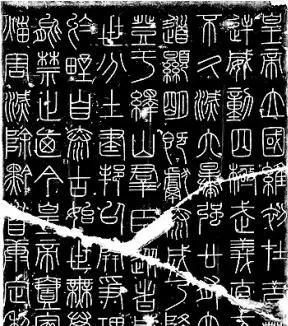 皇帝立國維初在昔
逆威動四極武義直
不久滅六暴強廿有六
道顯明既獻泰成乃降
登于繹山群臣從者
世分土建邦以開爭理
於野自泰古始世無萬
能禁止廼今皇帝壹家
災害滅除黔首康定